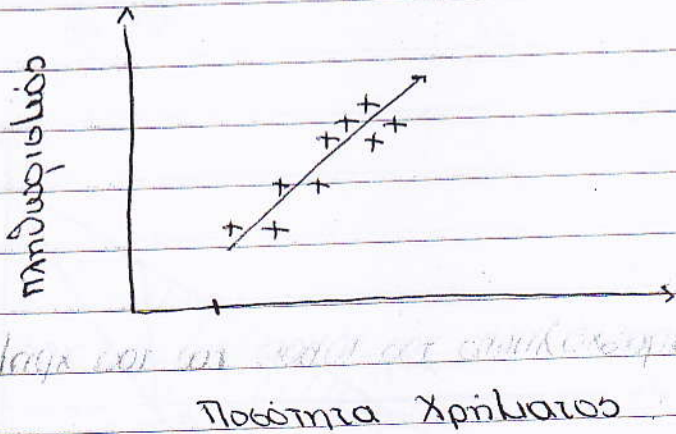 Πληθωρισμός
Ποσότητα Χρήματος